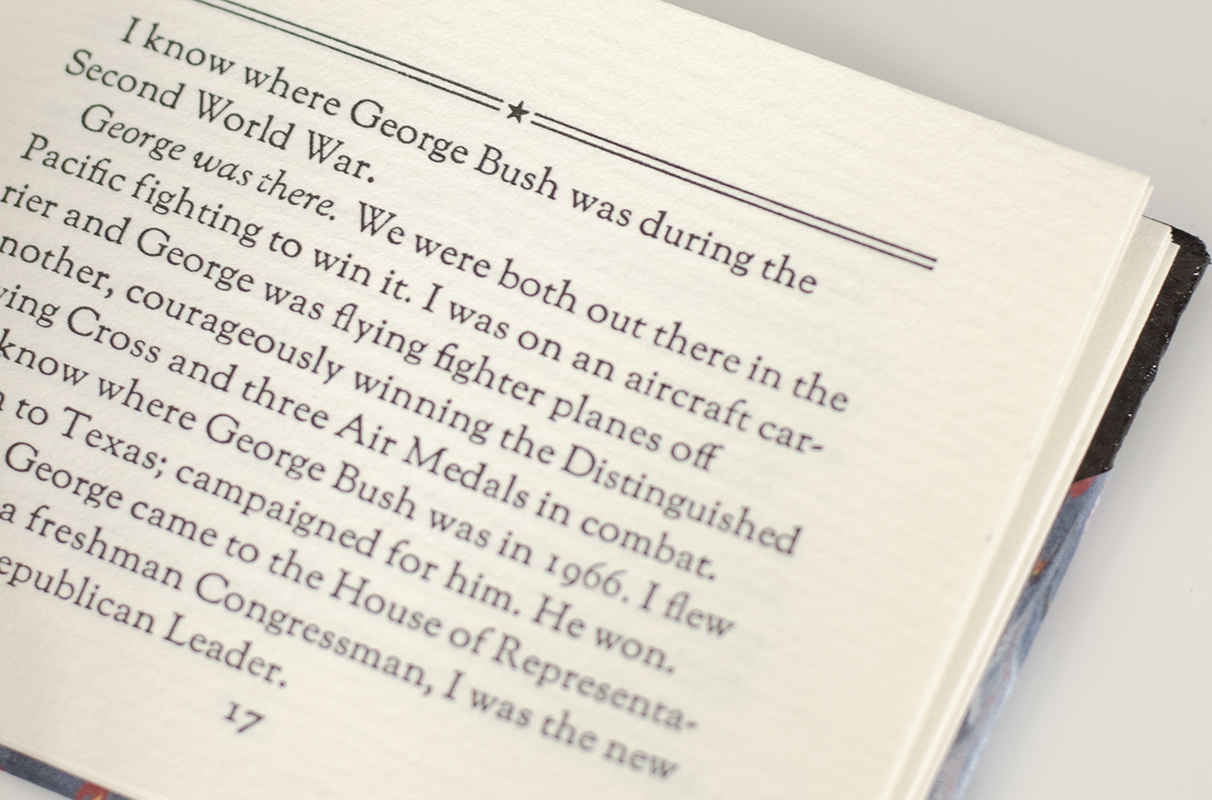 I know where George Bush was during the
Second World War.
George was there. We were both out there in the
Pacific fighting to win it. I was on an aircraft car-
rier and George was flying fighter planes off
nother, courageously winning the Distinguished
ying Cross and three Air Medals in combat.
know where George Bush was in 1966. I flew
to Texas; campaigned for him. He won.
George came to the House of Representa-
a freshman Congressman, I was the new
epublican Leader.
17